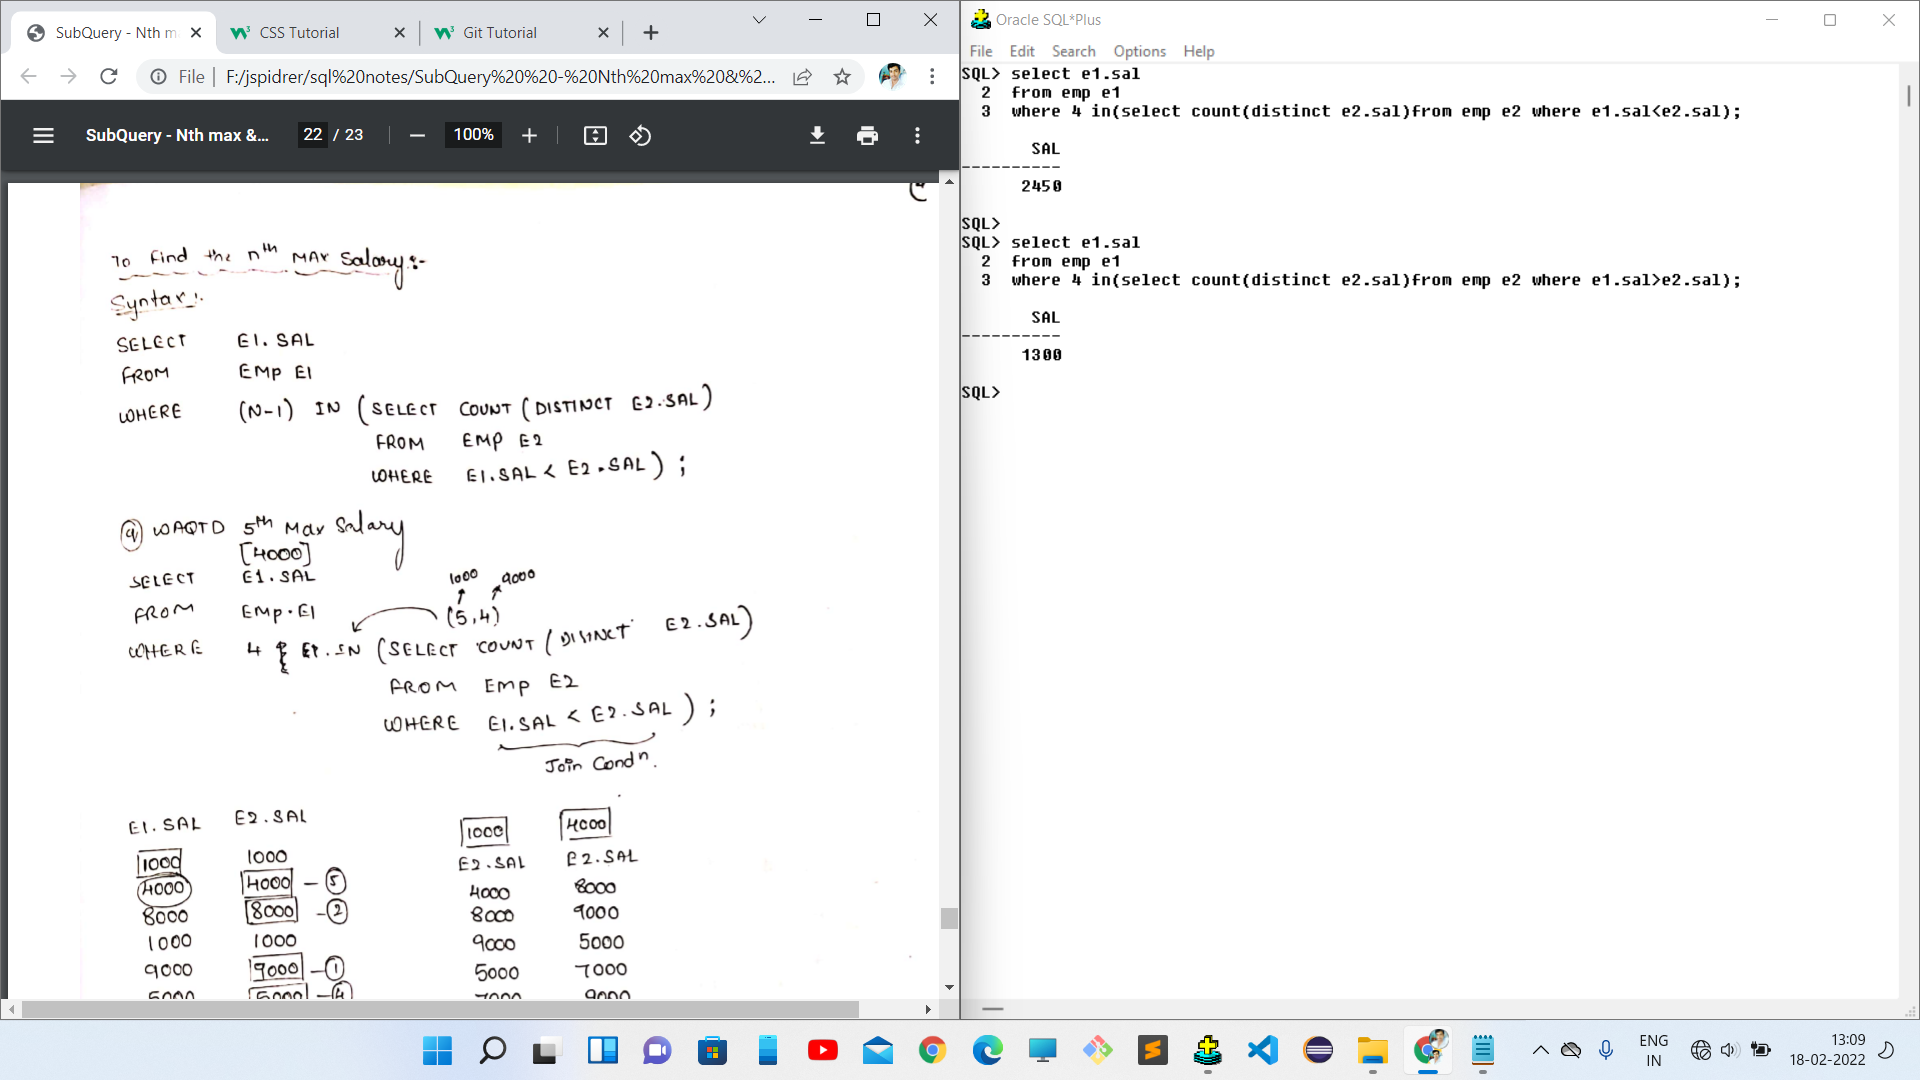 SubQuery - Nth m
CSS Tutorial
Git Tutorial
File | F:/jspidrer/sql%20notes/SubQuery%20%20-%20Nth%20max%20&%2...
SubQuery - Nth max &...
22 / 23
100%
To find the nth MAX Salary:-
Syntax:
SELECT E1.SAL
FROM EMP E1
WHERE (N-1) IN (SELECT COUNT (DISTINCT E2.SAL)
FROM EMP E2
WHERE E1.SAL < E2.SAL) ;
Q WAQTD 5th Max Salary
[4000]
SELECT E1.SAL
1000 9000
FROM EMP.E1
(5,4)
WHERE 4 IN (SELECT COUNT (DISTINCT E2.SAL)
FROM EMP E2
WHERE E1.SAL < E2.SAL ) ;
Join Condn.
E1.SAL E2.SAL 1000 4000
1000 1000 E2.SAL E2.SAL
4000 4000 - 5 4000 8000
8000 8000 - 2 8000 9000
1000 1000 9000 5000
9000 9000 - 1 5000 7000
5000 5000 - 4 7000 9000
Oracle SQL*Plus
File Edit Search Options Help
SQL> select e1.sal
2 from emp e1
3 where 4 in(select count(distinct e2.sal)from emp e2 where e1.sal<e2.sal);
SAL
----------
2450
SQL>
SQL> select e1.sal
2 from emp e1
3 where 4 in(select count(distinct e2.sal)from emp e2 where e1.sal>e2.sal);
SAL
----------
1300
SQL>
ENG
IN
13:09
18-02-2022